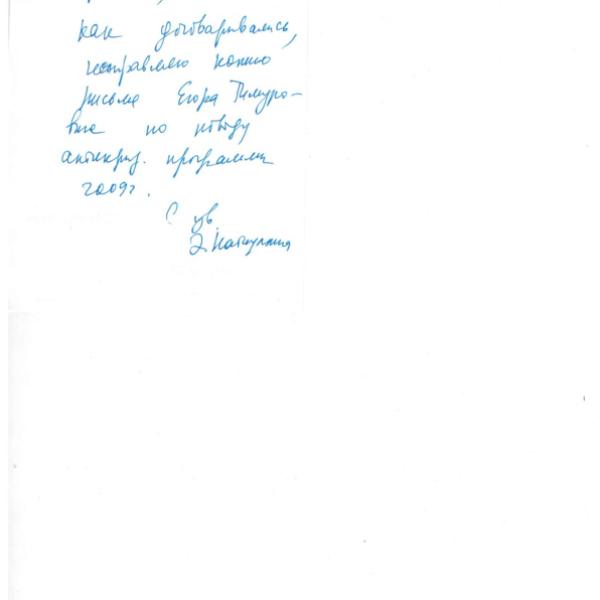 как договаривались,
направляю копию
письма Егора Тимуро-
вича по поводу
антикриз. программы
2009г.
С ув.
Э. Набиуллина